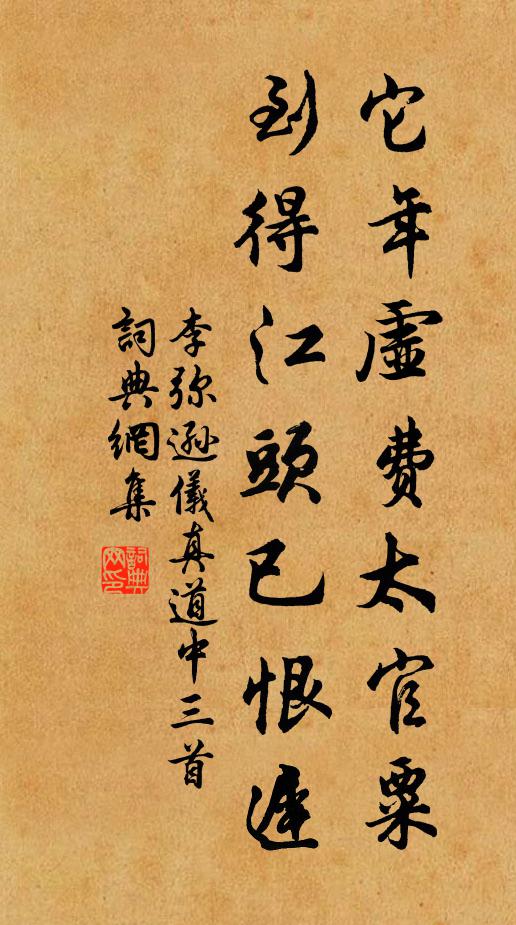 它年虛費太官粟
到得江頭已恨遲
李弥遜儀真道中三首
詞典網集
詞典網印